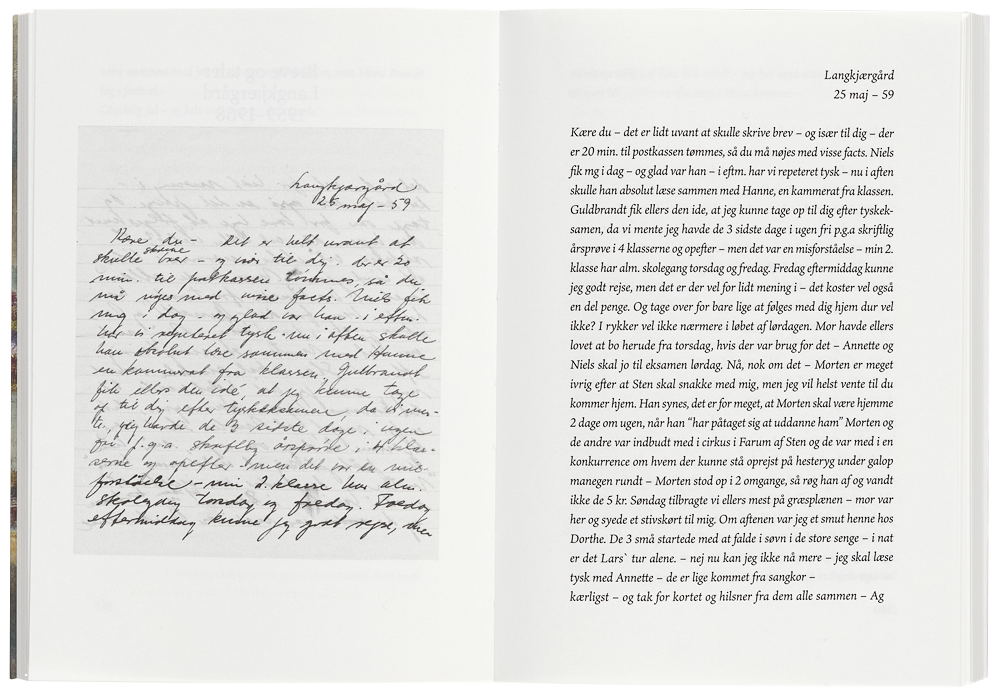 Langkjærgård
25 maj – 59
Kære du – det er lidt uvant at
skulle skrive brev – og især til dig – der er 20
min. til postkassen tømmes, så du
må nøjes med visse facts. Niels fik
mg i dag – og glad var han – i eftm.
har vi repeteret tysk – nu i aften skulle
han absolut læse sammen med Hanne
en kammerat fra klassen, Guldbrandt
fik ellers den idé, at jeg kunne tage
op til dig efter tyskeksamen, da vi men-
te, jeg havde de 3 sidste dage i ugen
fri p.g.a. skriftlig årsprøve i 4 klas-
serne og opefter – men det var en mis-
forståelse – min 2. klasse har alm.
skolegang torsdag og fredag. Fredag
eftermiddag kunne jeg godt rejse, men
Langkjærgård
25 maj – 59
Kære du – det er lidt uvant at skulle skrive brev – og især til dig – der
er 20 min. til postkassen tømmes, så du må nøjes med visse facts. Niels
fik mg i dag – og glad var han – i eftm. har vi repeteret tysk – nu i aften
skulle han absolut læse sammen med Hanne, en kammerat fra klassen.
Guldbrandt fik ellers den ide, at jeg kunne tage op til dig efter tyskek-
samen, da vi mente jeg havde de 3 sidste dage i ugen fri p.g.a skriftlig
årsprøve i 4 klasserne og opefter – men det var en misforståelse – min 2.
klasse har alm. skolegang torsdag og fredag. Fredag eftermiddag kunne
jeg godt rejse, men det er der vel for lidt mening i – det koster vel også
en del penge. Og tage over for bare lige at følges med dig hjem dur vel
ikke? I rykker vel ikke nærmere i løbet af lørdagen. Mor havde ellers
lovet at bo herude fra torsdag, hvis der var brug for det – Annette og
Niels skal jo til eksamen lørdag. Nå, nok om det – Morten er meget
ivrig efter at Sten skal snakke med mig, men jeg vil helst vente til du
kommer hjem. Han synes, det er for meget, at Morten skal være hjemme
2 dage om ugen, når han “har påtaget sig at uddanne ham” Morten og
de andre var indbudt med i cirkus i Farum af Sten og de var med i en
konkurrence om hvem der kunne stå oprejst på hesteryg under galop
manegen rundt – Morten stod op i 2 omgange, så røg han af og vandt
ikke de 5 kr. Søndag tilbragte vi ellers mest på græsplænen – mor var
her og syede et stivskørt til mig. Om aftenen var jeg et smut henne hos
Dorthe. De 3 små startede med at falde i søvn i de store senge – i nat
er det Lars` tur alene. – nej nu kan jeg ikke nå mere – jeg skal læse
tysk med Annette – de er lige kommet fra sangkor –
kærligst – og tak for kortet og hilsner fra dem alle sammen – Ag